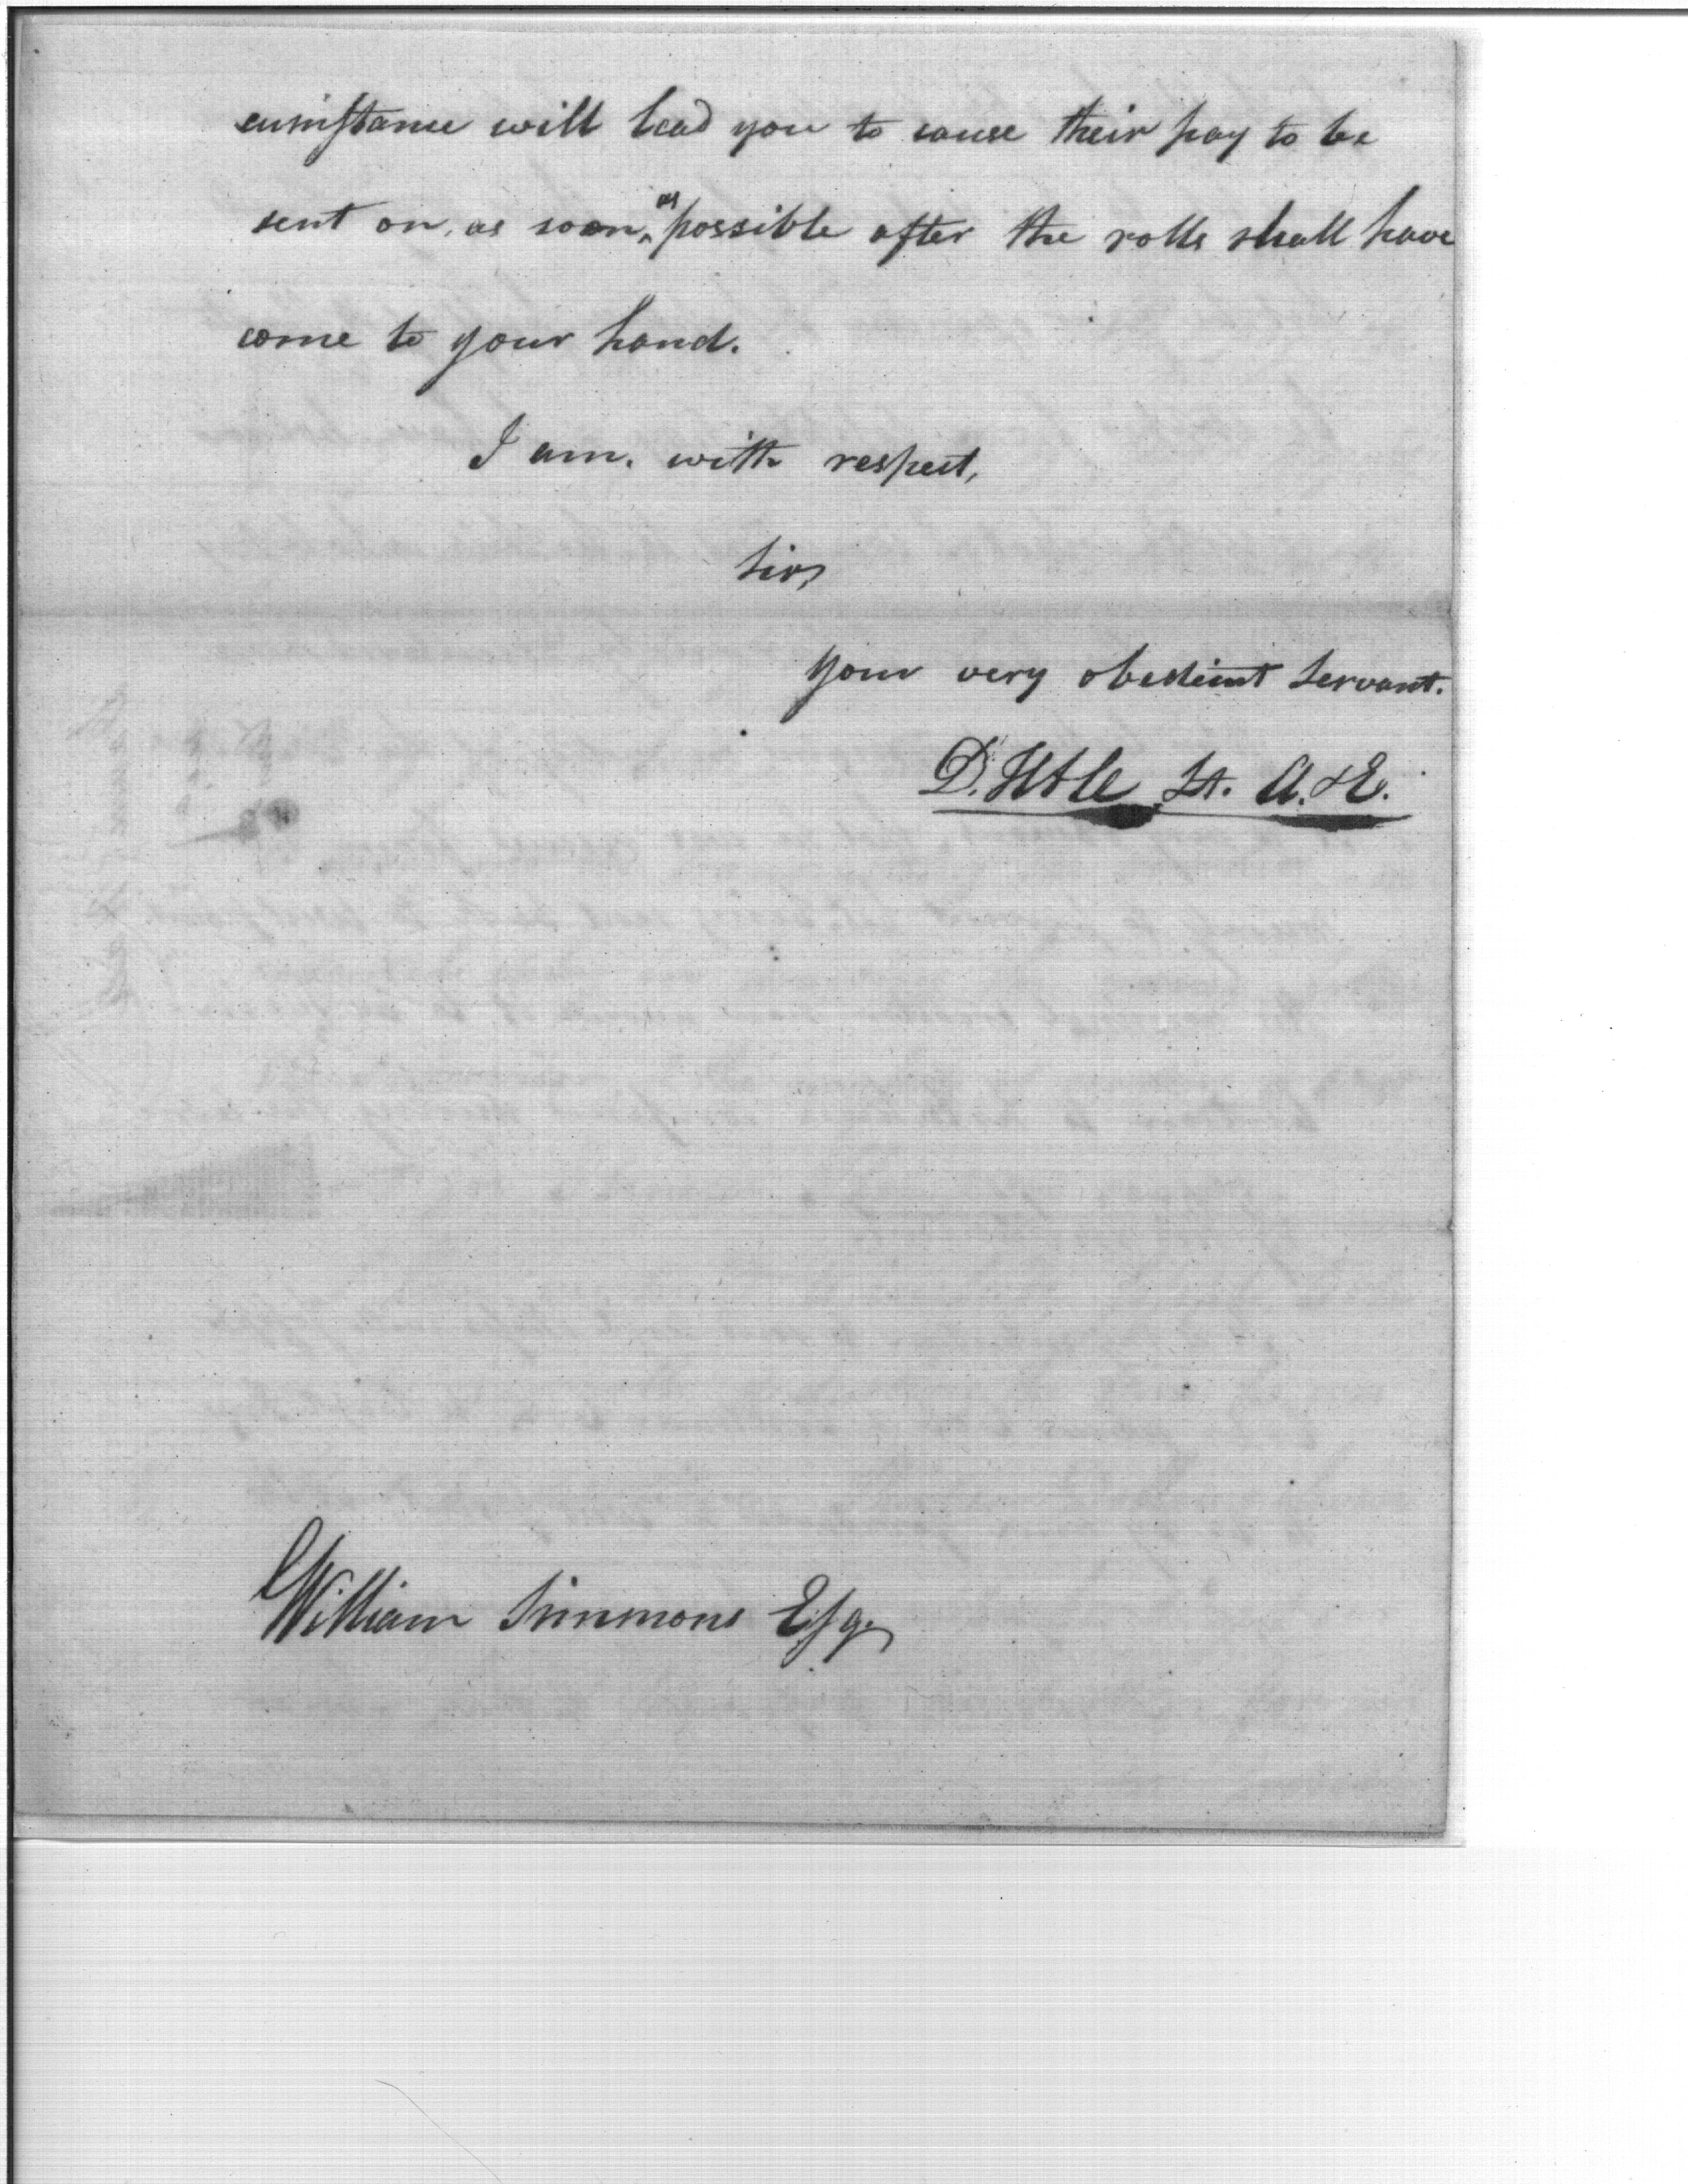 cumstance will lead you to cause their pay to be
sent on, as soon ^as possible after the rolls shall have
come to your hand.
I am, with respect,
Sir,
your very obedient Servant.
D. Lt. A. & E.
William Simmons Esq.